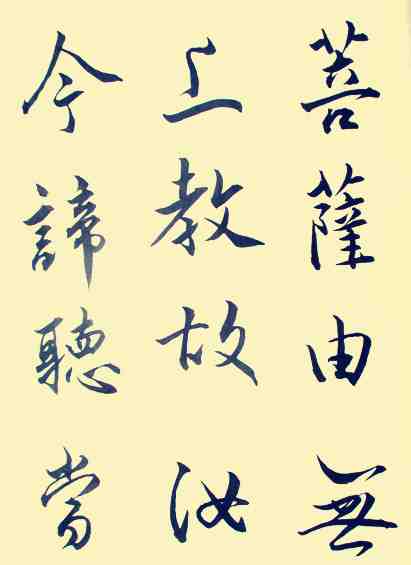 菩薩由無
上教故汝
今諦聽當